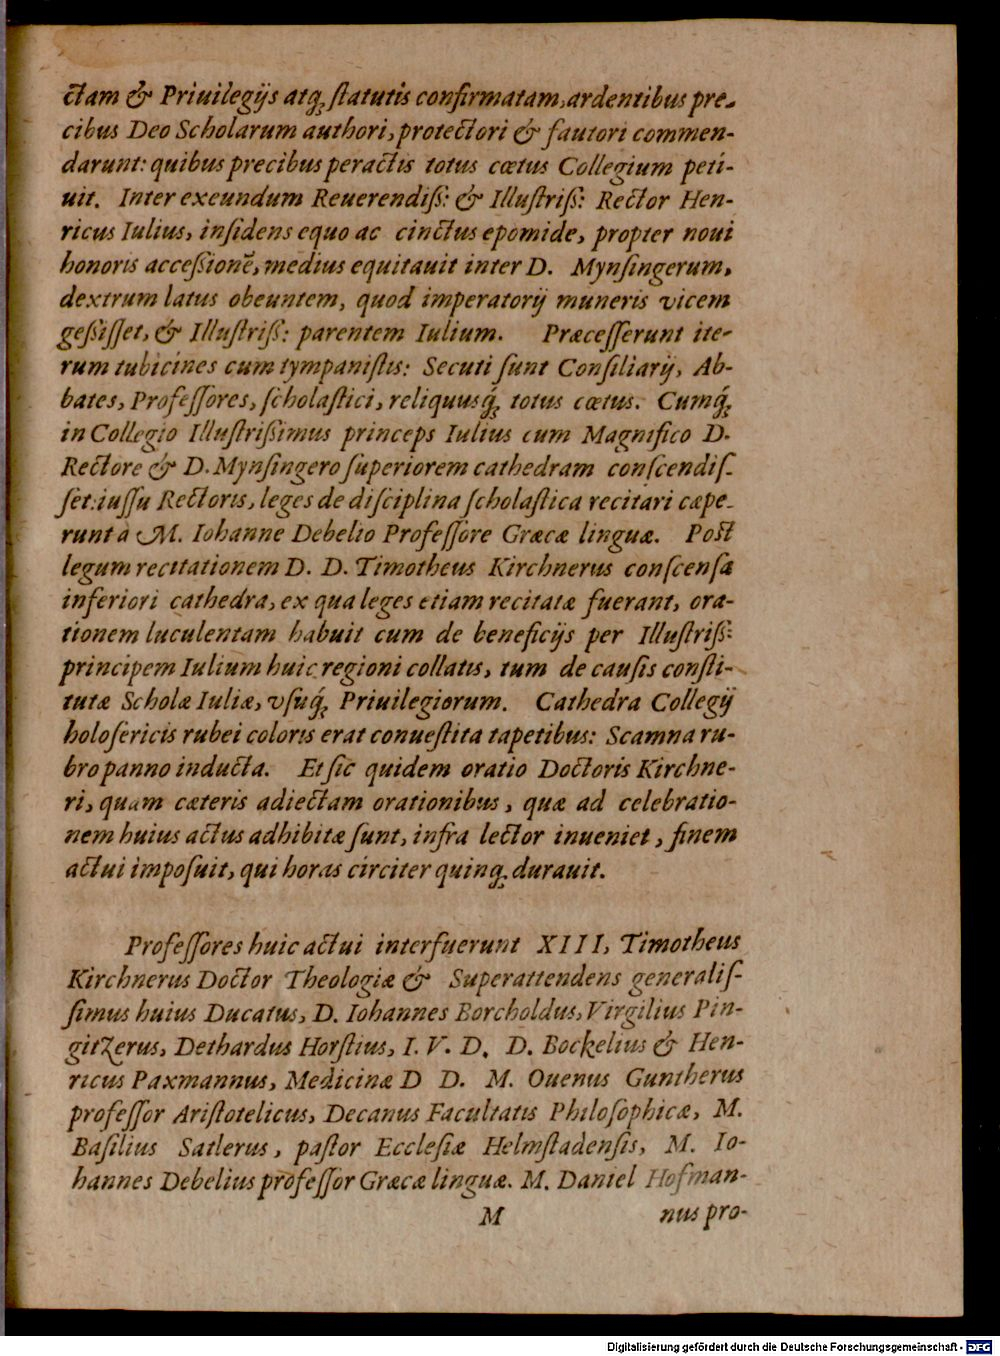 ctam & Priuilegijs atq́; ſtatutis confirmatam, ardentibus pre-
cibus Deo Scholarum authori, protectori & fautori commen-
darunt: quibus precibus peractis totus cœtus Collegium peti-
uit. Inter exeundum Reuerendiß: & Illuſtriß: Rector Hen-
ricus Iulius, inſidens equo ac cinctus epomide, propter noui
honoris acceßionē, medius equitauit inter D. Mynſingerum,
dextrum latus obeuntem, quod imperatorij muneris vicem
geßiſſet, & Illuſtriß: parentem Iulium. Præceſſerunt ite-
rum tubicines cum tympaniſtis: Secuti ſunt Conſiliarij, Ab-
bates, Profeſſores, ſcholaſtici, reliquusq́; totus cœtus. Cumq́;
in Collegio Illuſtrißimus princeps Iulius cum Magnifico D.
Rectore & D. Mynſingero ſuperiorem cathedram conſcendiſ-
ſet: iuſſu Rectoris, leges de diſciplina ſcholaſtica recitari cæpe-
runt à M. Iohanne Debelio Profeſſore Græcæ linguæ. Poſt
legum recitationem D. D. Timotheus Kirchnerus conſcenſa
inferiori cathedra, ex qua leges etiam recitatæ fuerant, ora-
tionem luculentam habuit cum de beneficijs per Illuſtriß:
principem Iulium huic regioni collatis, tum de cauſis conſti-
tutæ Scholæ Iuliæ, vſuq́; Priuilegiorum. Cathedra Collegij
holoſericis rubei coloris erat conueſtita tapetibus: Scamna ru-
bro panno inducta. Et ſic quidem oratio Doctoris Kirchne-
ri, quam cæteris adiectam orationibus, quæ ad celebratio-
nem huius actus adhibitæ ſunt, infra lector inueniet, finem
actui impoſuit, qui horas circiter quinq; durauit.
Profeſſores huic actui interfuerunt XIII, Timotheus
Kirchnerus Doctor Theologiæ & Superattendens generaliſ-
ſimus huius Ducatus, D. Iohannes Borcholdus, Virgilius Pin-
gitzerus, Dethardus Horſtius, I. V. D. D. Bockelius & Hen-
ricus Paxmannus, Medicinæ D D. M. Ouenus Guntherus
profeſſor Ariſtotelicus, Decanus Facultatis Philoſophicæ, M.
Baſilius Satlerus, paſtor Eccleſiæ Helmſtadenſis, M. Io-
hannes Debelius profeſſor Græcæ linguæ. M. Daniel Hofman-
M nus pro-
Digitalisierung gefördert durch die Deutsche Forschungsgemeinschaft - DFG